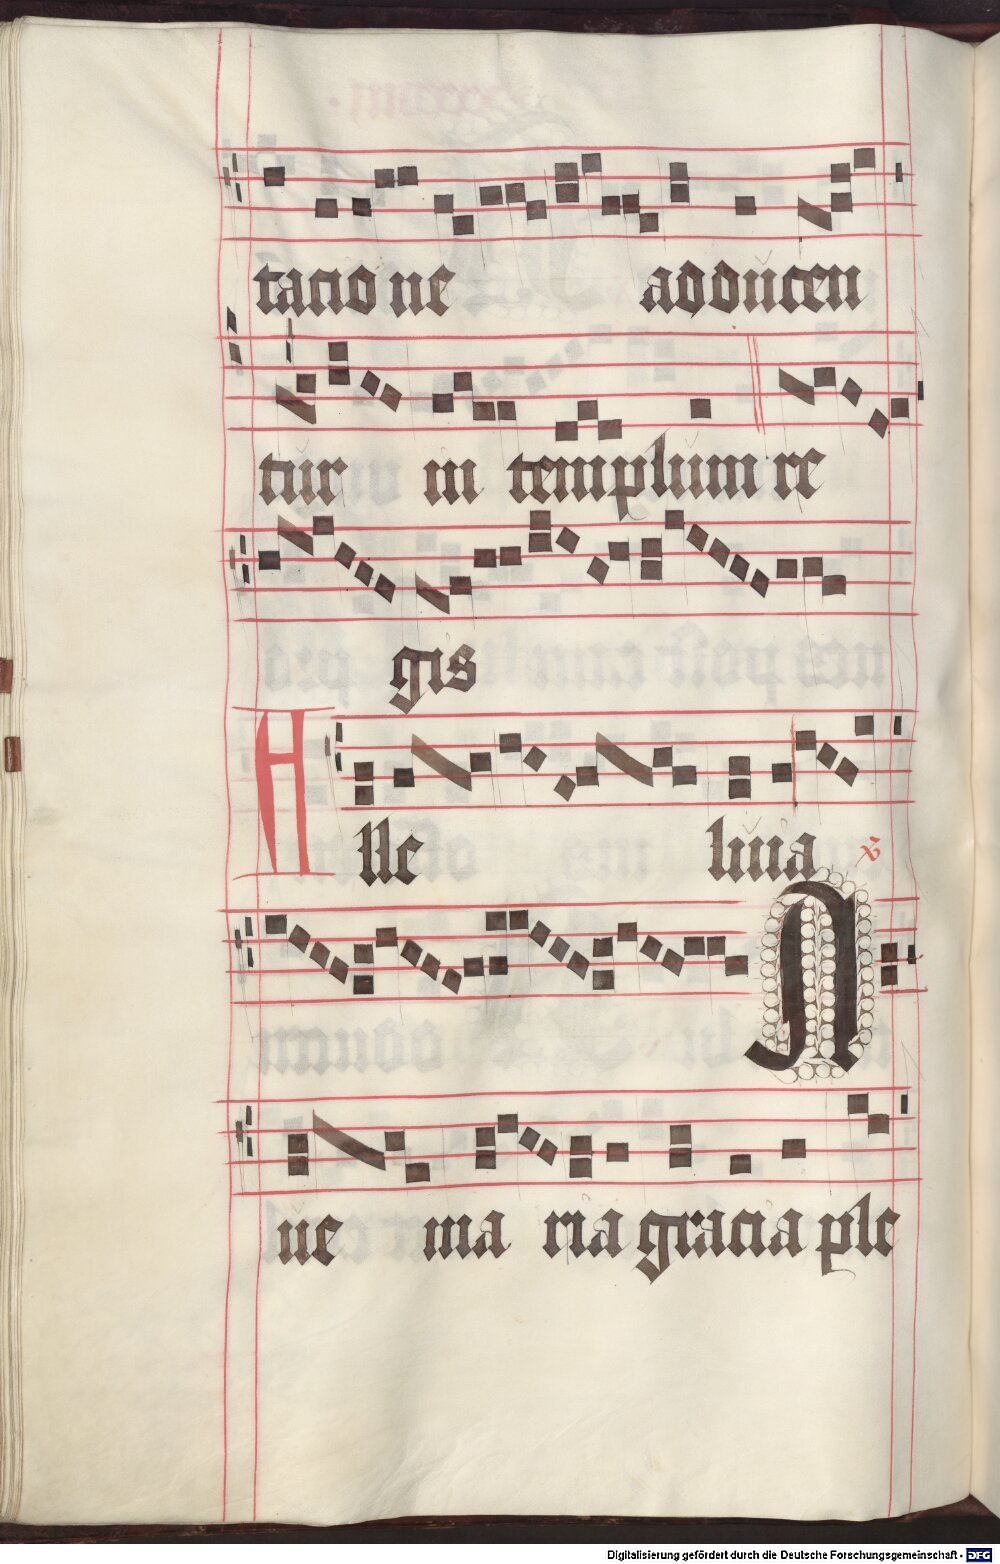 tacio ne adducen
tur in templum re
gis
Alle luia
A
ue ma ria gracia ple
Digitalisierung gefördert durch die Deutsche Forschungsgemeinschaft - DFG